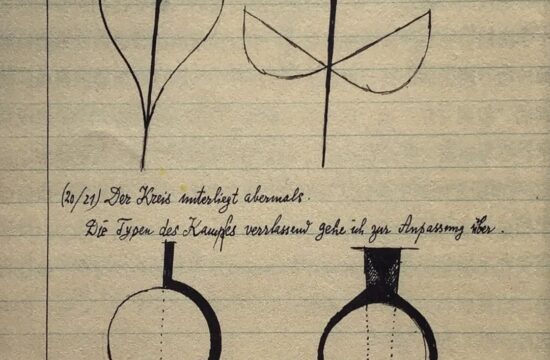 (20/21) Der Kreis unterliegt abermals.
Die Typen des Kampfes verlassend gehe ich zur Anpassung über.